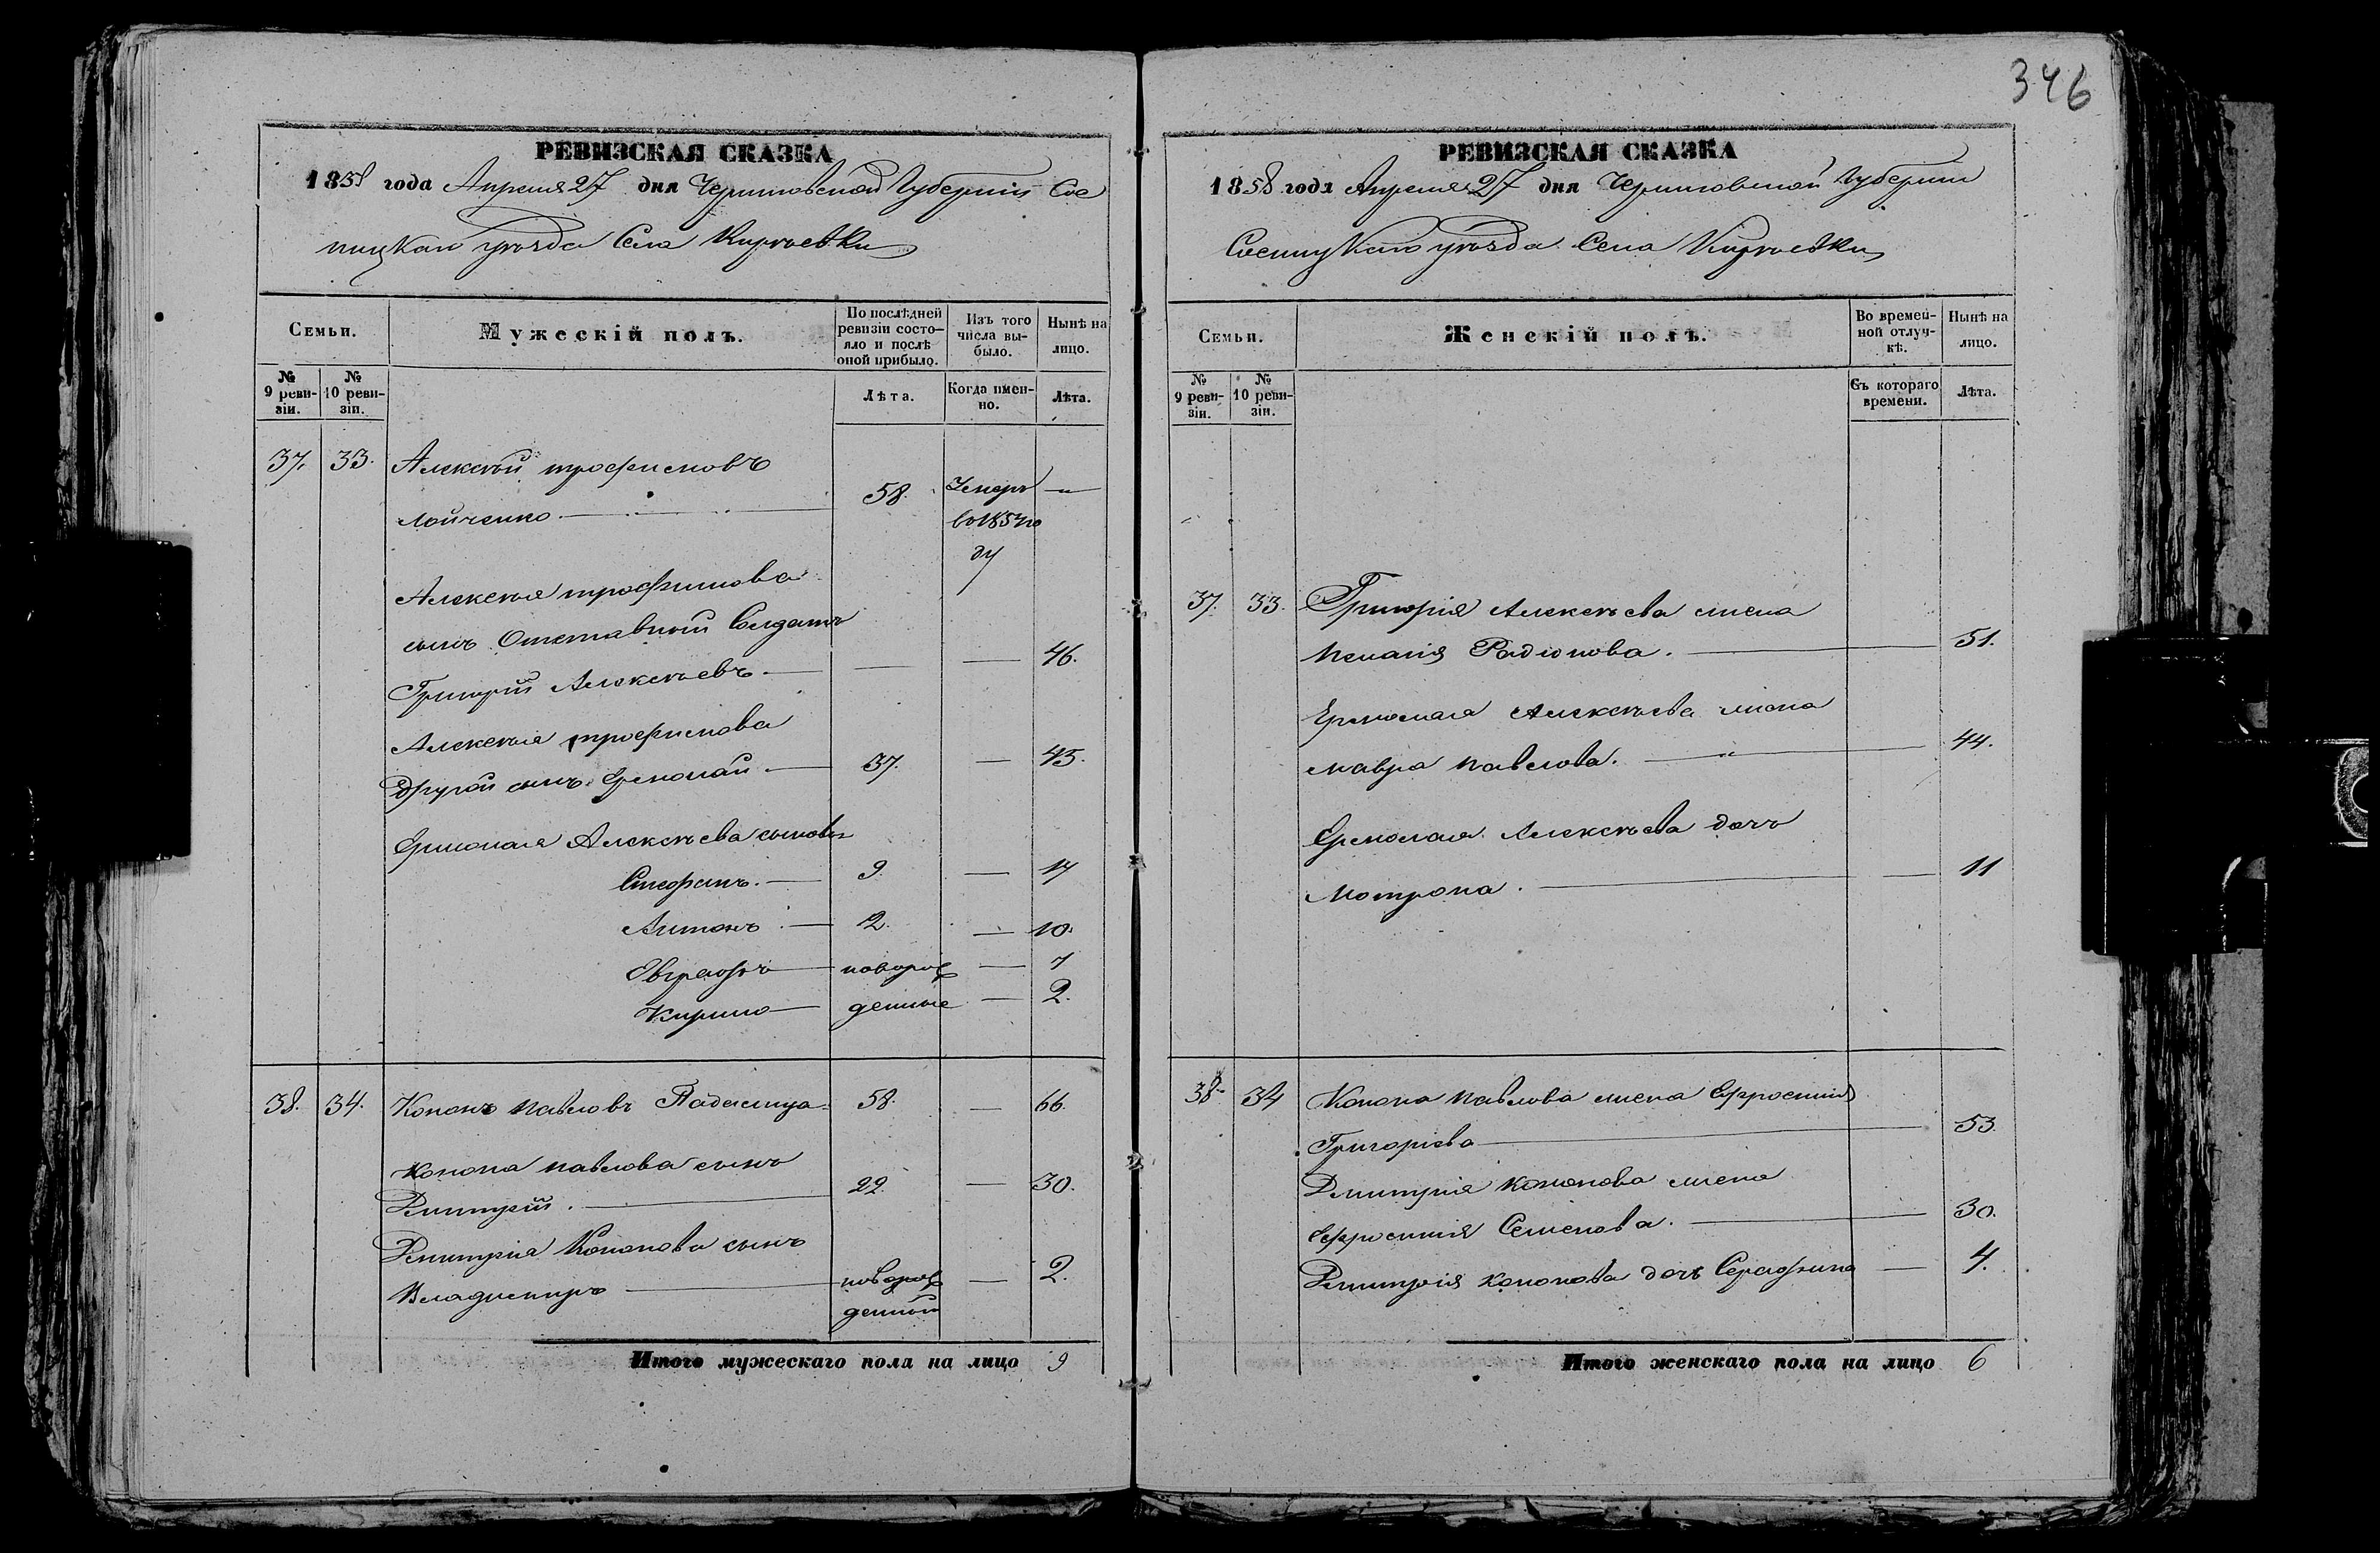 346
РЕВИЗСКАЯ СКАЗКА
1858 года Апреля 27 дня Черниговской Губерніи Сос
ницкаго уѣзда Села Киріевки
Семьи.
Мужескій полъ.
По послѣдней ревизіи состояло и послѣ оной прибыло.
Изъ того числа выбыло.
Нынѣ на лицо.
№ 9 ревизіи.
№ 10 ревизіи.
Лѣта.
Когда именно.
Лѣта.
37. 33. Алексѣй трофимовъ
Лойченко. 58. Умеръ
въ 1853 го
ду
Алексѣя трофимова
сынъ Отставный Солдатъ
Григорій Алексѣевъ. 46.
Алексѣя трофимова
другой сынъ Ермолай 37. 45.
Ермолая Алексѣева сыновья
Стефанъ. 9. 17
Антонъ 2. 10.
Евграфъ новорож 7
Кирило денные 2.
38. 34. Кононъ павловъ 58. 66.
Конона павлова сынъ
Дмитрій. 22. 30.
Дмитрія Кононова сынъ
Владимиръ новорож 2.
денный
Итого мужескаго пола на лицо 9
РЕВИЗСКАЯ СКАЗКА
1858 года Апреля 27 дня Черниговской Губерніи
Сосницкаго уѣзда Села Киріевки
Семьи.
Женскій полъ.
Во временной отлучкѣ.
Нынѣ на лицо.
№ 9 ревизіи.
№ 10 ревизіи.
Съ котораго времени.
Лѣта.
37. 33. Григорія Алексѣева жена
Пелагія Радіонова. 51.
Ермолая Алексѣева жена
Мавра павлова. 44.
Ермолая Алексѣева дочь
Мотрона. 11
38. 34 Конона павлова жена Ефросинія
Григоріева 53.
Дмитрія кононова жена
Ефросинія Семенова. 30.
Дмитрія кононова дочь Серафима 4.
Итого женскаго пола на лицо 6